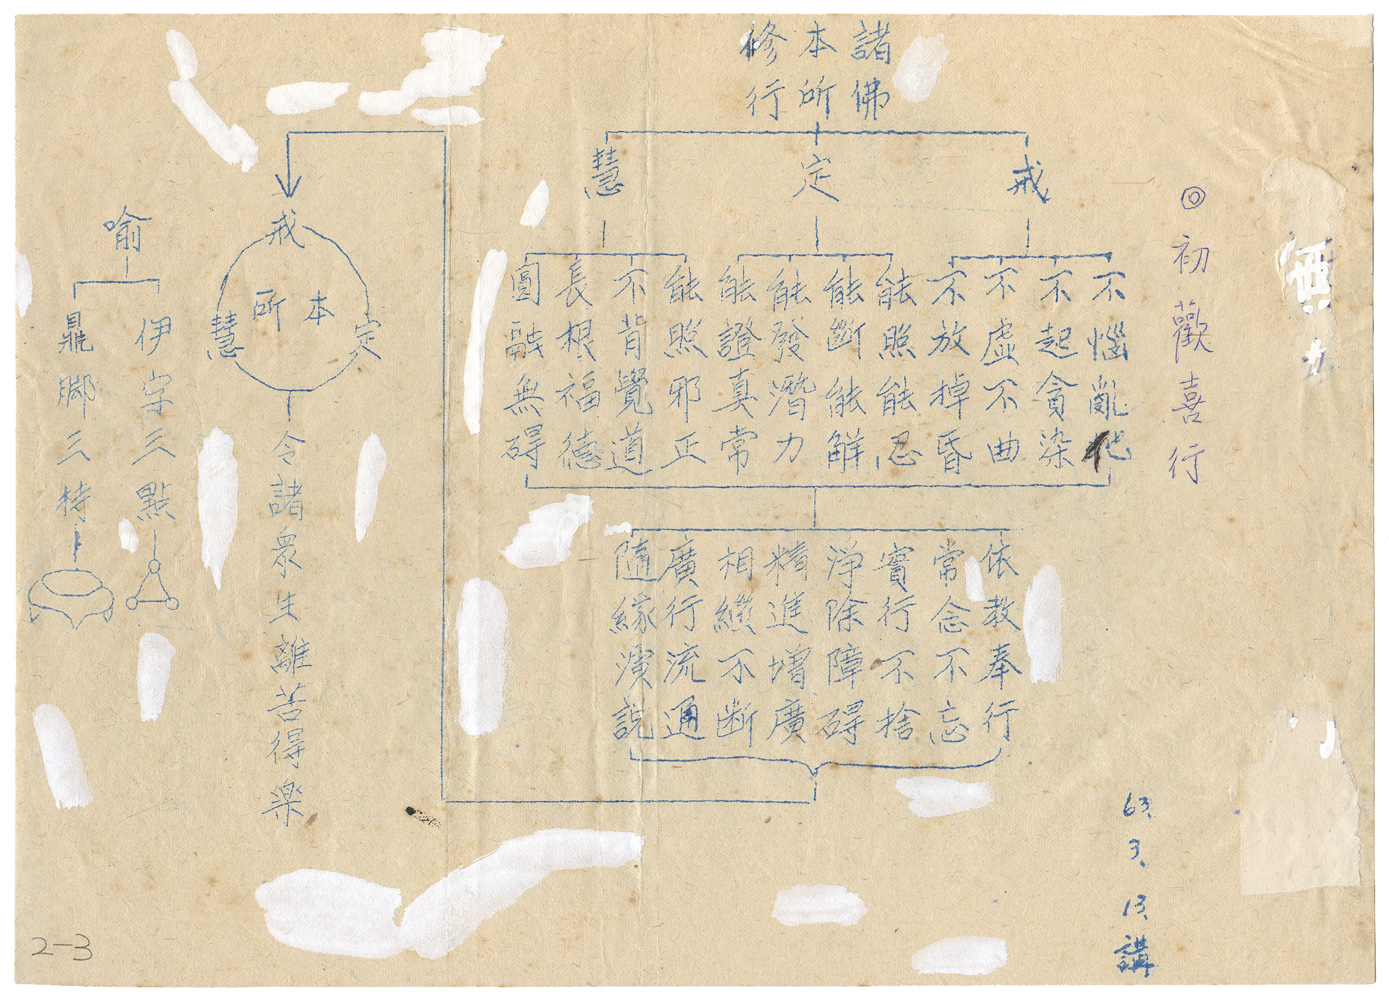 ◎初歡喜行
諸佛
本所
修行
戒
定
慧
不惱亂他
不起貪染
不虛不曲
不放掉昏
能照能忍
能斷能解
能發潛力
能證真常
能照邪正
不背覺道
長根福德
圓融無碍
依教奉行
常念不忘
實行不捨
淨除障碍
精進增廣
相繼不断
廣行流通
隨緣演說
戒
定
慧
本所
令諸衆生離苦得樂
喻
伊字三點
鼎脚三持
63.3.13.講
2-3